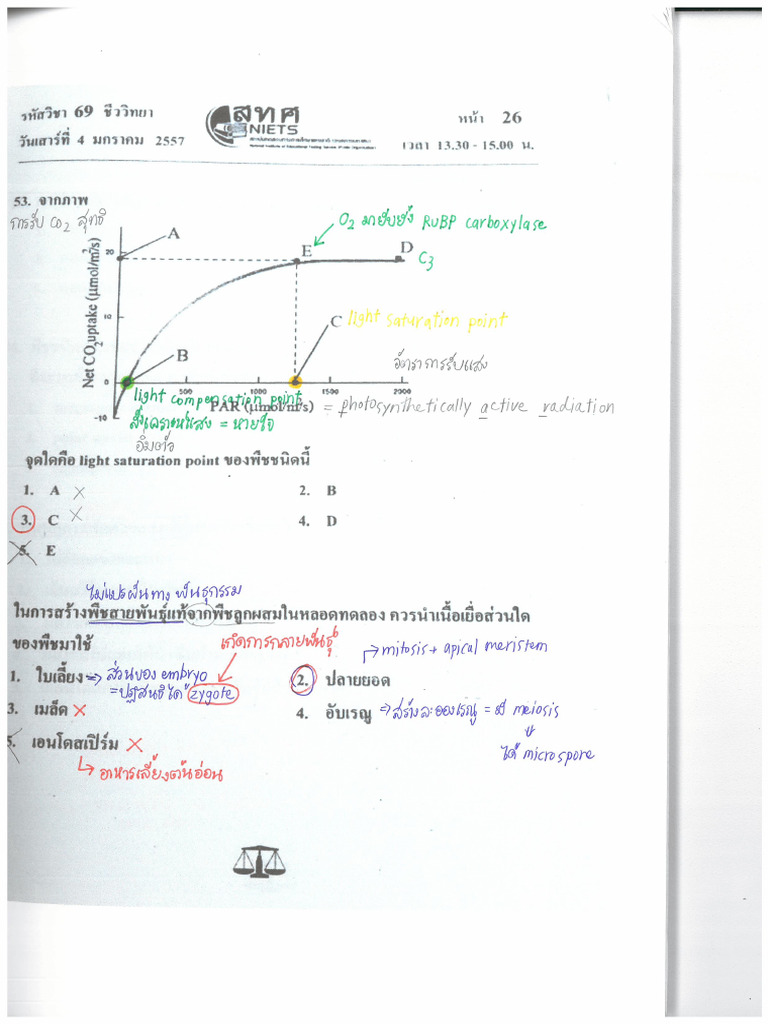 รหัสวิชา 69 ชีววิทยา
วันเสาร์ที่ 4 มกราคม 2557
สทศ
NIETS
หน้า 26
เวลา 13.30 - 15.00 น.
53. จากภาพ
การรับ CO2 สุทธิ
O2 มายับยั้ง RuBP carboxylase
A
E
D
C3
20
10
0
-10
Net CO2 uptake (µmol/m²/s)
B
C
light saturation point
อัตราการรับแสง
500
1000
1500
2000
PAR (µmol/m²/s) = photosynthetically active radiation
light compensation point
สังเคราะห์แสง = หายใจ
อิ่มตัว
จุดใดคือ light saturation point ของพืชชนิดนี้
1. A
2. B
3. C
4. D
5. E
ไม่แปรผันทางพันธุกรรม
ในการสร้างพืชสายพันธุ์แท้จากพืชลูกผสมในหลอดทดลอง ควรนำเนื้อเยื่อส่วนใด
ของพืชมาใช้
เกิดการกลายพันธุ์
mitosis + apical meristem
1. ใบเลี้ยง ⇒ ส่วนของ embryo
= ปฏิสนธิได้ zygote
2. ปลายยอด
3. เมล็ด
4. อับเรณู ⇒ สร้างละอองเรณู = มี meiosis
ได้ microspore
5. เอนโดสเปิร์ม
อาหารเลี้ยงต้นอ่อน